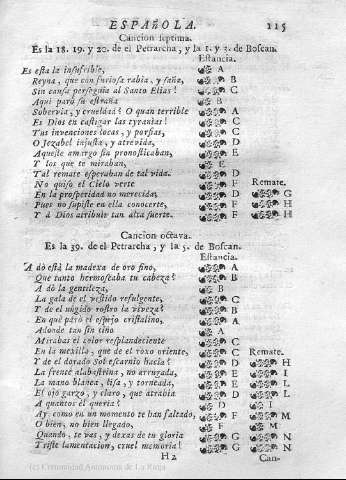 ESPAÑOLA. 115
Cancion septima.
Es la 18. 19. y 20. de el Petrarcha, y la 1. y 3. de Boscan.
Estancia.
Es esta la insufrible, A
Reyna, que con furiosa rabia, y saña, B
Sin causa perseguia al Santo Elias! C
Aqui paró su estraña B
Sobervia, y crueldad! O quan terrible A
Es Dios en castigar las tyranias! C
Tus invenciones locas, y porfias, C
O Jezabel injusta, y atrevida, D
Aqueste amargo fin pronosticaban, E
Y los que te miraban, E
Tal remate esperaban de tal vida. D
No quiso el Cielo verte F Remate.
En la prosperidad no merecida, D G
Pues no supiste en ella conocerte, F H
Y à Dios atribuir tan alta suerte. F H
Cancion octava.
Es la 39. de el Petrarcha, y la 5. de Boscan.
Estancia.
A dò està la madexa de oro fino, A
Que tanto hermoseaba tu cabeza? B
A dò la gentileza, B
La gala de el vestido refulgente, C
Y de el rostro la viveza? B
En qué paró el espejo cristalino, A
Adonde tan sin tino A
Mirabas el color resplandeciente C
En la mexilla, que de el roxo oriente, C Remate.
Y de el dorado Sol escarnio hacia? D H
La frente alabastrina, no arrugada, E I
La mano blanca, lisa, y torneada, E L
El ojo garzo, y claro, que atrahia D L
A quantos él queria? D I
Ay como en un momento te han faltado, F M
O bien, no bien llegado, F M
Quando, te vas, y dexas de tu gloria G N
Triste lamentacion, cruel memoria! G N
H 2 Can-
(c) Comunidad Autónoma de La Rioja